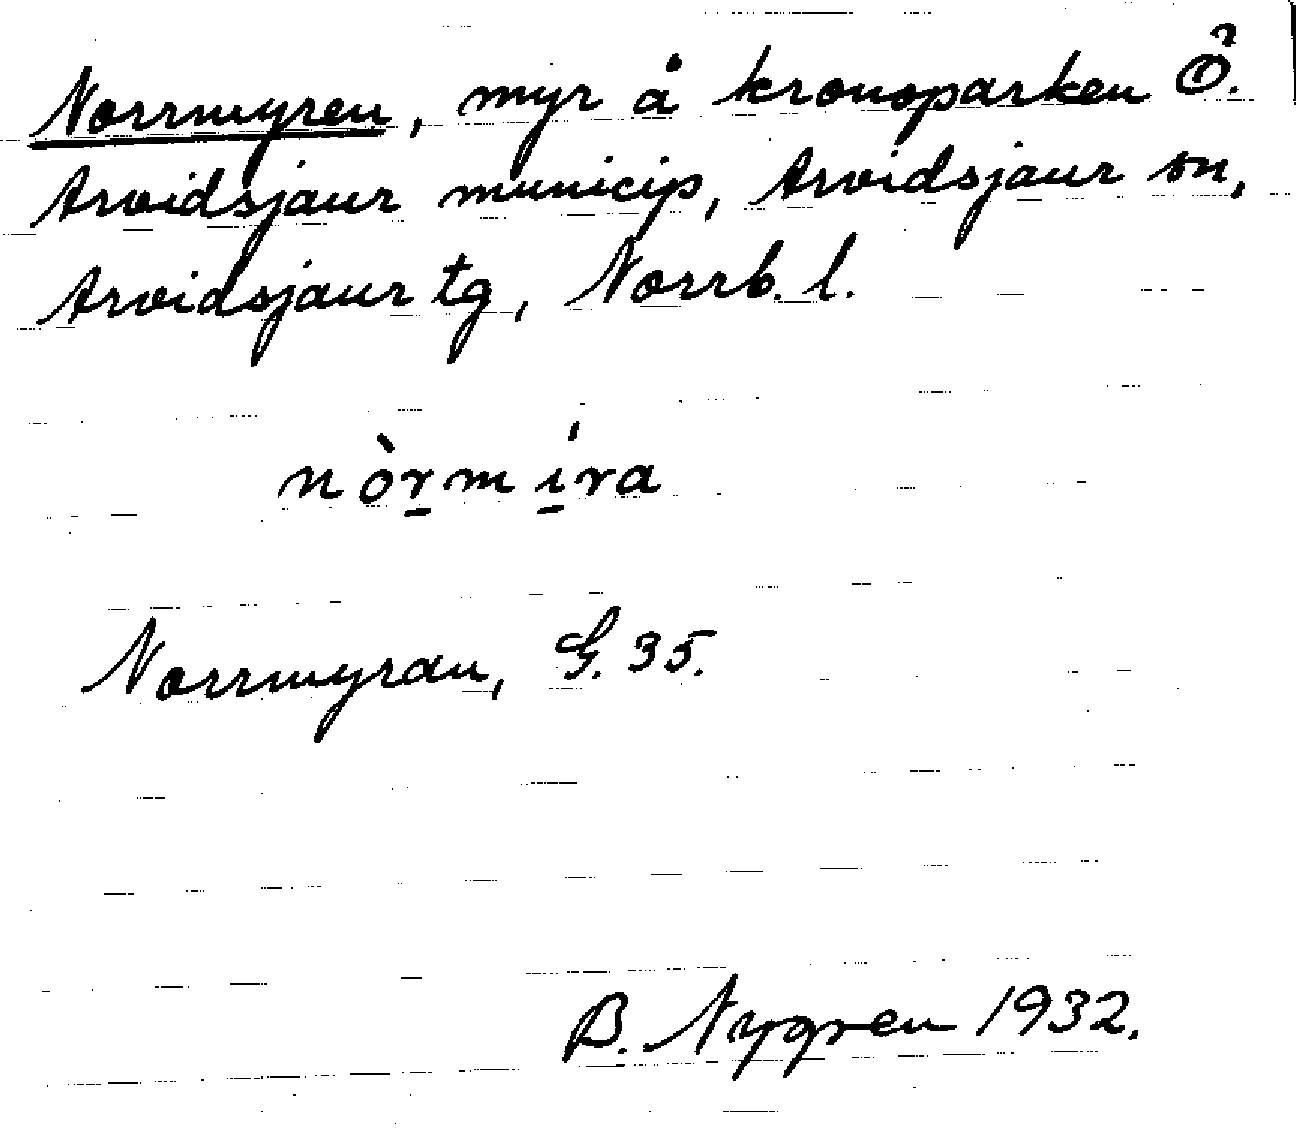 Norrmyren, myr å kronoparken Ö.
Arvidsjaur municip, Arvidsjaur sn,
Arvidsjaur tg, Norrb. l.
nòr̲mí̲ra
Norrmyran, G. 35.
B. Nygren 1932.